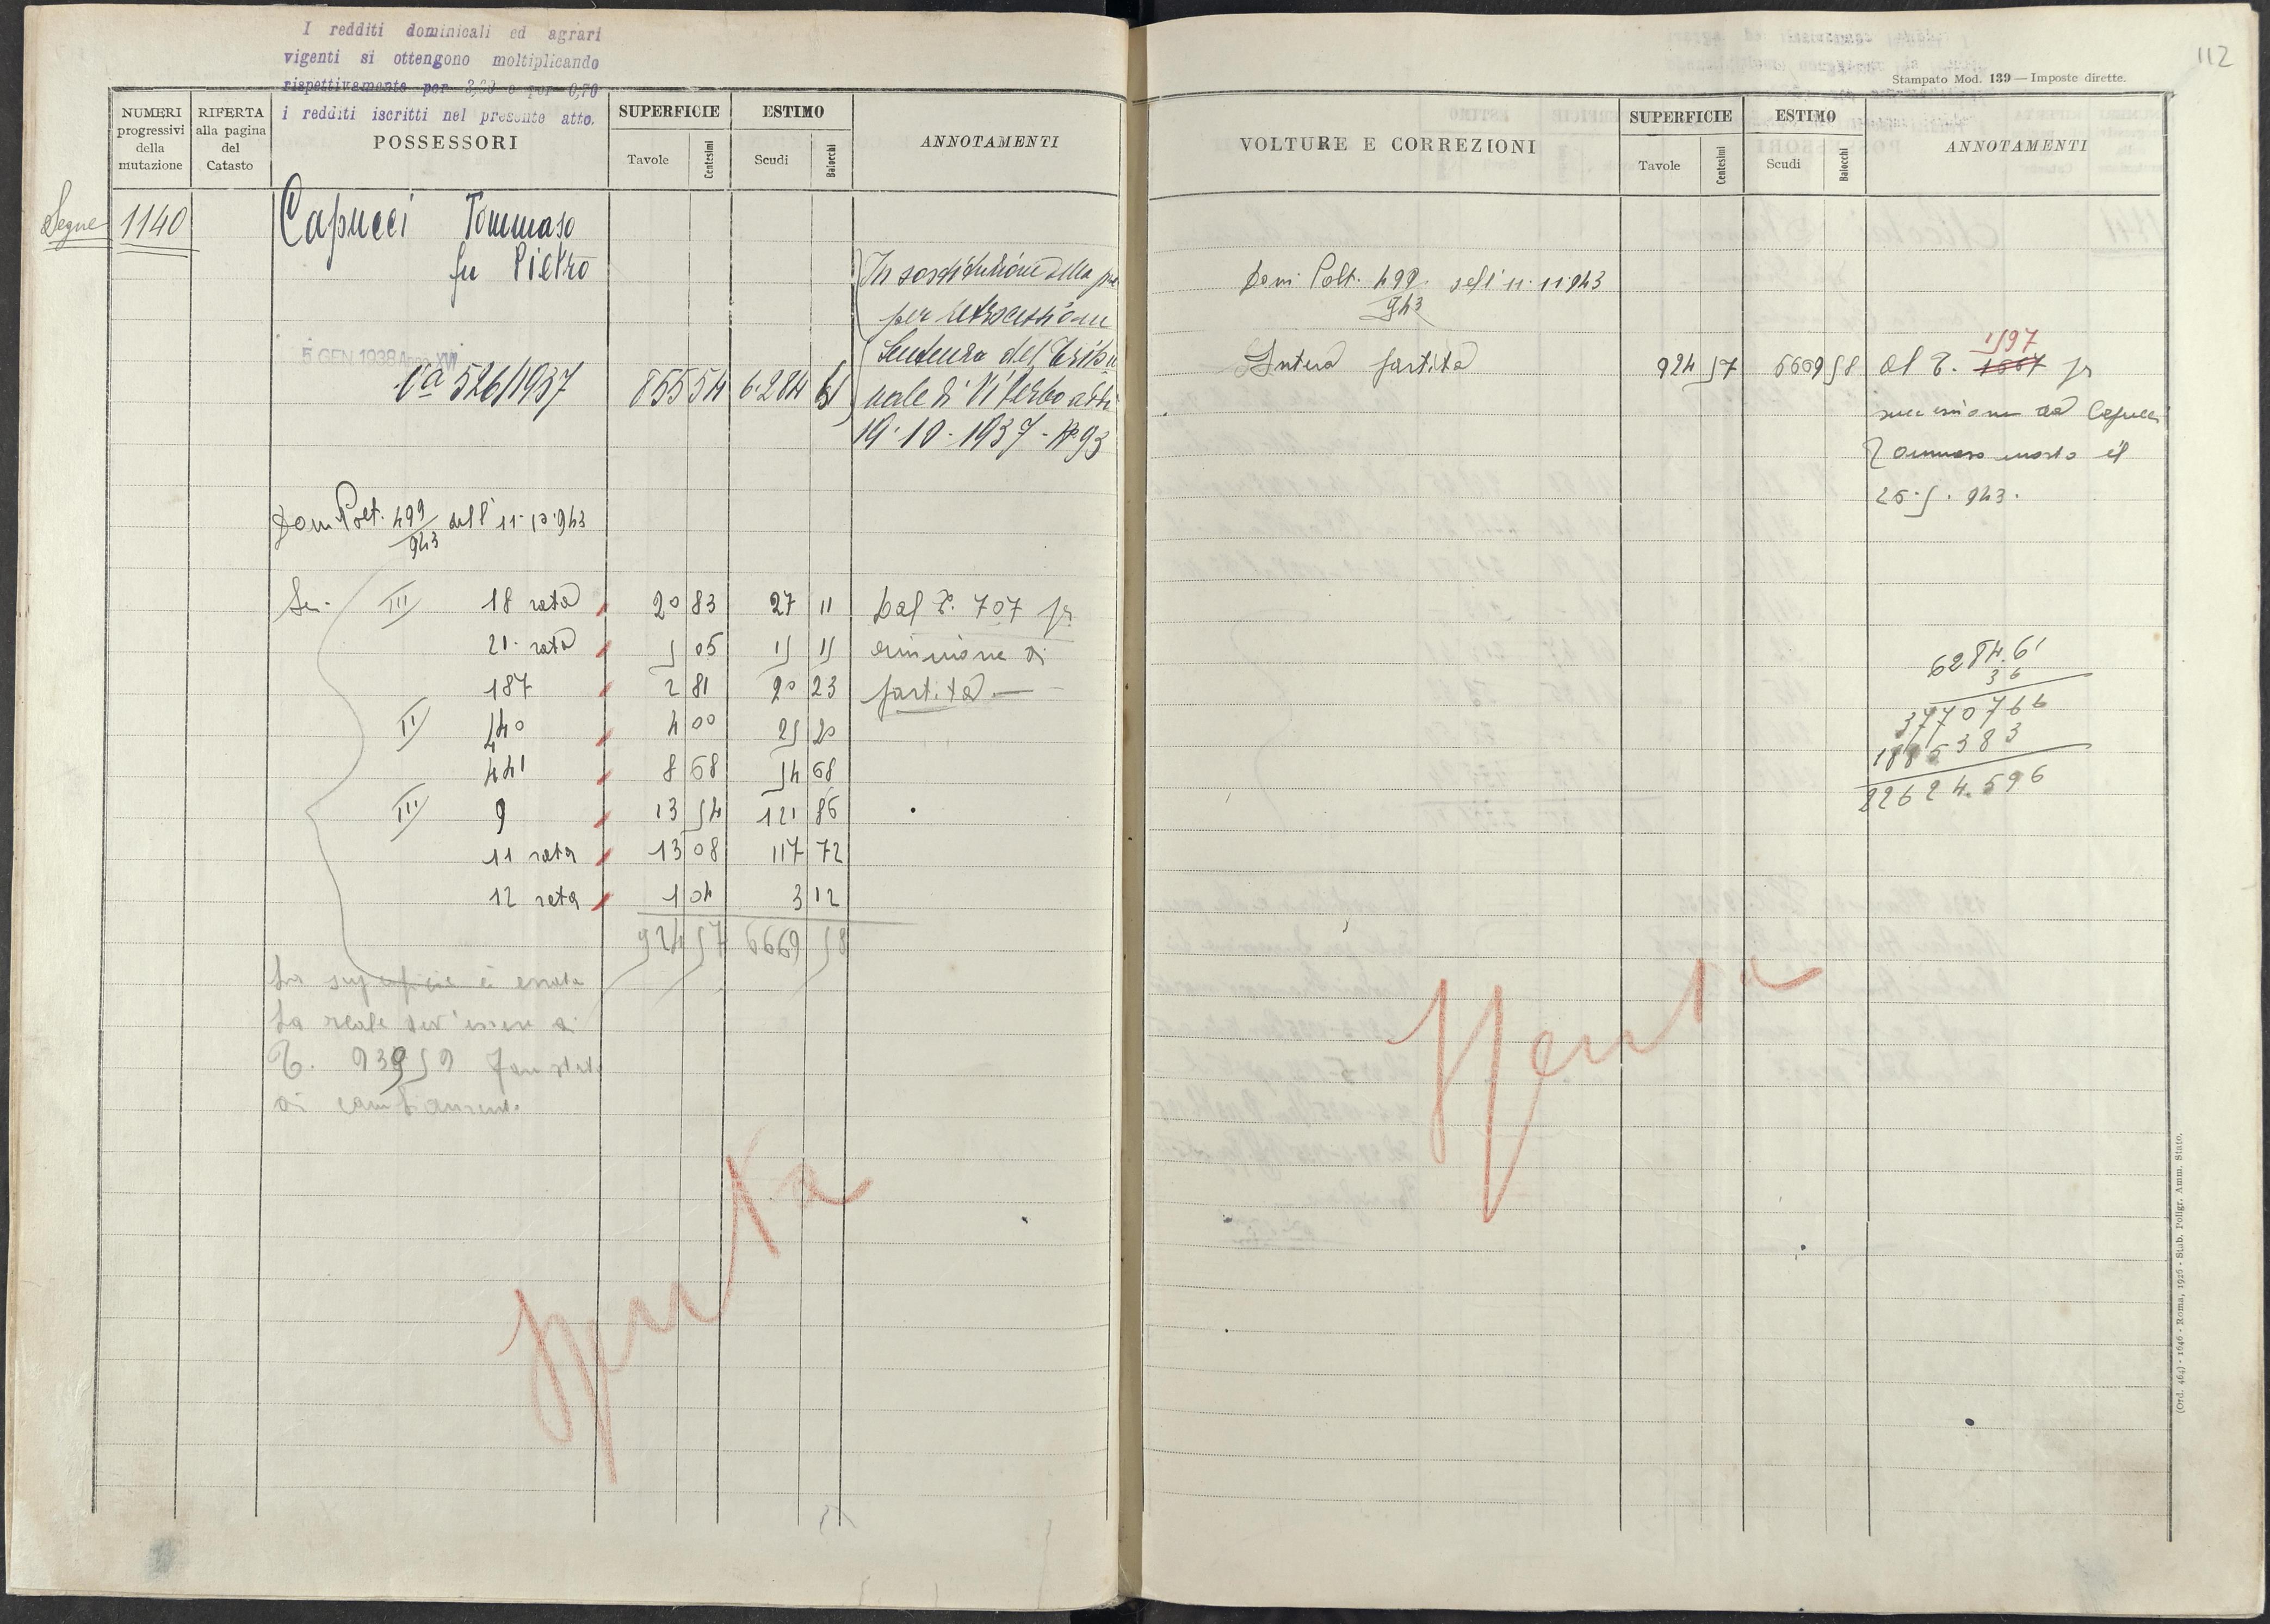 I redditi dominicali ed agrari
vigenti si ottengono moltiplicando
rispettivamente per 3,60 e per 0,70
i redditi iscritti nel presente atto.
NUMERI progressivi della mutazione
RIFERTA alla pagina del Catasto
POSSESSORI
SUPERFICIE
Tavole
Centesimi
ESTIMO
Scudi
Baiocchi
ANNOTAMENTI
Segue 1140
Capucci Tommaso
fu Pietro
In sostituzione della
per retrocessione
Sentenza del Tribu
nale di Viterbo
19-10-1937-N°93
5 GEN. 1938 Anno XVI
Va 526/1937 855 54 6284 61
Dom. Polt. 499/943 dell'11-10-943
Sez. III 18 rata 20 83 27 11 Dal P. 707 pr
21 rata 5 05 15 15 riunione di
187 2 81 20 23 partita —
II 440 4 00 25 20
441 8 68 54 68
III 9 13 54 121 86
11 rata 13 08 117 72
12 rata 1 04 3 12
924 57 6669 58
La superficie è errata
La reale dev'essere di
T. 939 59
di cambiamento
Spenta
112
Stampato Mod. 139 — Imposte dirette.
VOLTURE E CORREZIONI
SUPERFICIE
Tavole
Centesimi
ESTIMO
Scudi
Baiocchi
ANNOTAMENTI
Dom. Polt. 499/943 dell'11-11-943
1597
Intera partita 924 57 6669 58 al P. 1567 pr
successione da Capucci
Tommaso morto il
25.5.943.
6284.61
36
3770766
1885383
22624.596
Spenta
(Ord. 464) - 1646 - Roma, 1926 - Stab. Poligr. Amm. Stato.